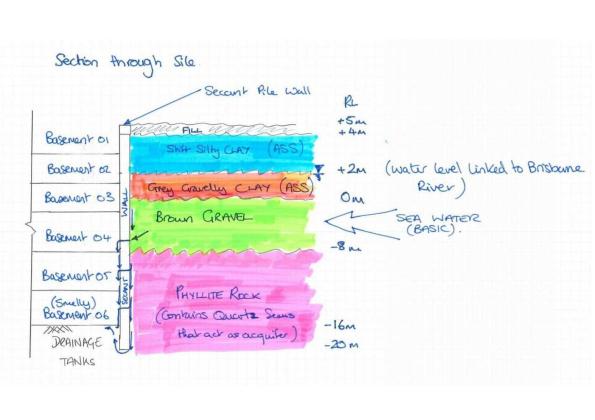 Section through Site
Secant Pile Wall
RL
+5m
+4m
FILL
Basement 01
Stiff Silty CLAY (ASS)
Basement 02
+2m (Water level linked to Brisbane
River)
Grey Gravelly CLAY (ASS)
Basement 03
0m
WALL
Brown GRAVEL
SEA WATER
(BASIC).
Basement 04
-8m
Basement 05
SECANT
PHYLLITE ROCK
(Smelly)
Basement 06
(Contains Quartz Seams
that act as acquifer)
-16m
-20m
DRAINAGE
TANKS